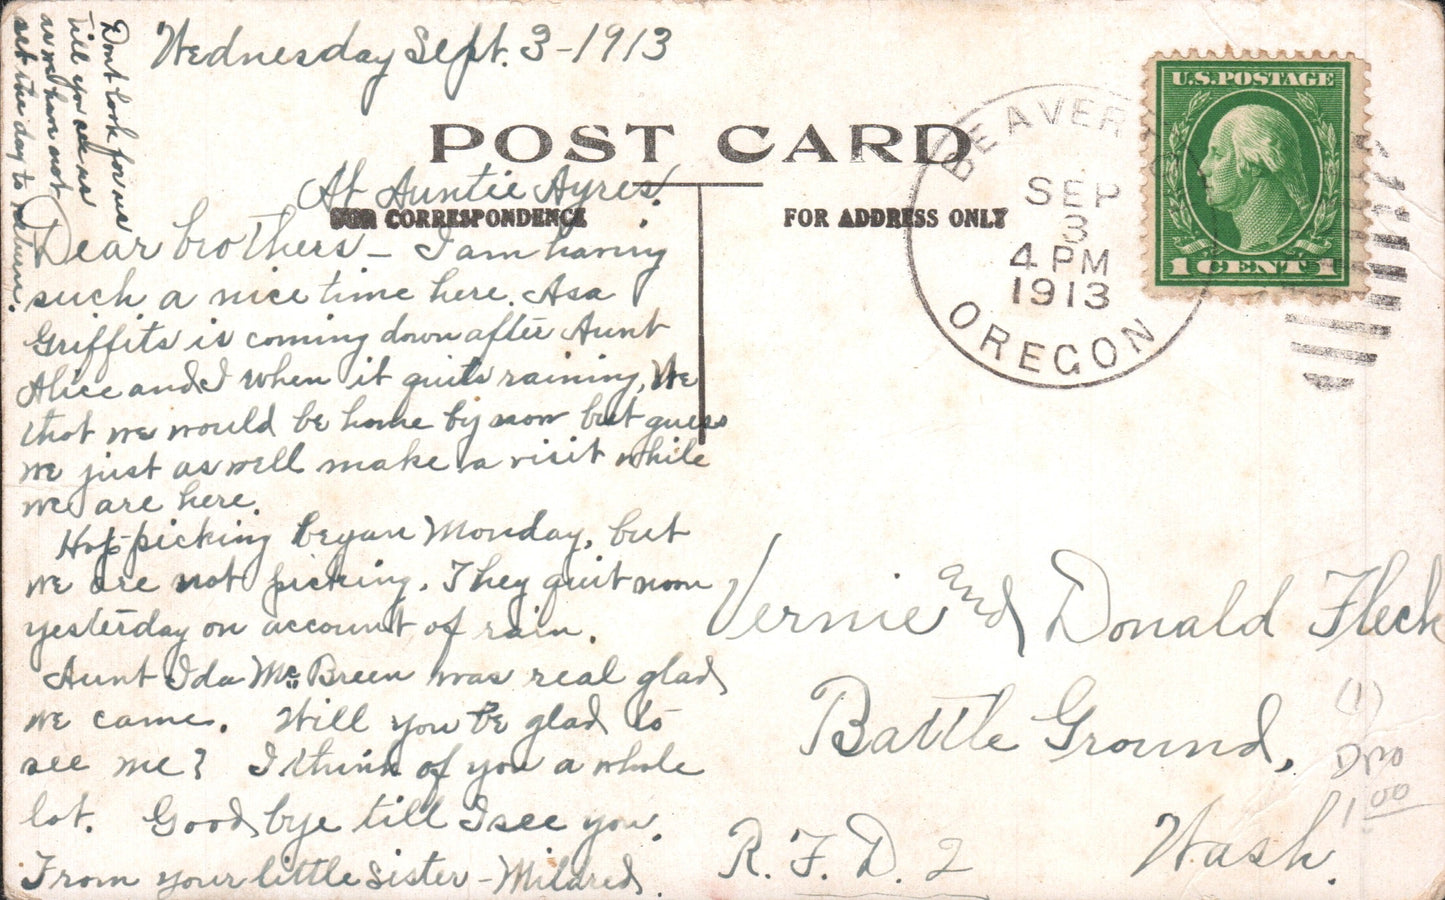 Wednesday Sept. 3-1913
POST CARD
At Auntie Ayres.
FOR CORRESPONDENCE
FOR ADDRESS ONLY
Dear brothers - I am having
such a nice time here. Asa
Griffits is coming down after Aunt
Alice and I when it quits raining, We
that we would be home by now but guess
we just as well make a visit while
we are here.
Hop-picking began Monday, but
we are not picking. They quit noon
yesterday on account of rain.
Aunt Ida McBreen was real glad
we came. Will you be glad to
see me? I think of you a whole
lot. Good bye till I see you.
From your little sister - Mildred.
Dont look for us
till you see us
as we have not
set the day to return.
BEAVERTON
SEP
3
4 PM
1913
OREGON
U.S. POSTAGE
1 CENT 1
Vernie and Donald Fleck
Battle Ground,
R. F. D. 2 Wash.
(1)
DPO
1.00